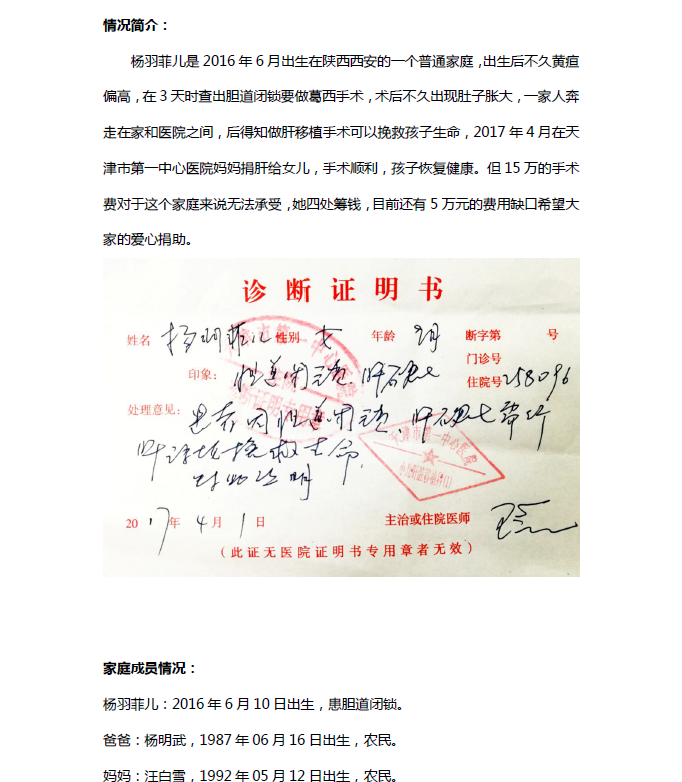 情况简介：
杨羽菲儿是 2016 年 6 月出生在陕西西安的一个普通家庭，出生后不久黄疸
偏高，在 3 天时查出胆道闭锁要做葛西手术，术后不久出现肚子胀大，一家人奔
走在家和医院之间，后得知做肝移植手术可以挽救孩子生命，2017 年 4 月在天
津市第一中心医院妈妈捐肝给女儿，手术顺利，孩子恢复健康。但 15 万的手术
费对于这个家庭来说无法承受，她四处筹钱，目前还有 5 万元的费用缺口希望大
家的爱心捐助。
诊断证明书
姓名 杨羽菲儿 性别 女 年龄 9月 断字第 号
门诊号
印象： 胆道闭锁、肝硬化 住院号 258096
处理意见： 患者因胆道闭锁、肝硬化需行
肝移植挽救生命
特此证明
2017 年 4 月 1 日 主治或住院医师
（此证无医院证明书专用章者无效）
市第一中心医院
证明专用章
市第一中心医院
家庭成员情况：
杨羽菲儿：2016 年 6 月 10 日出生，患胆道闭锁。
爸爸：杨明武，1987 年 06 月 16 日出生，农民。
妈妈：汪白雪，1992 年 05 月 12 日出生，农民。